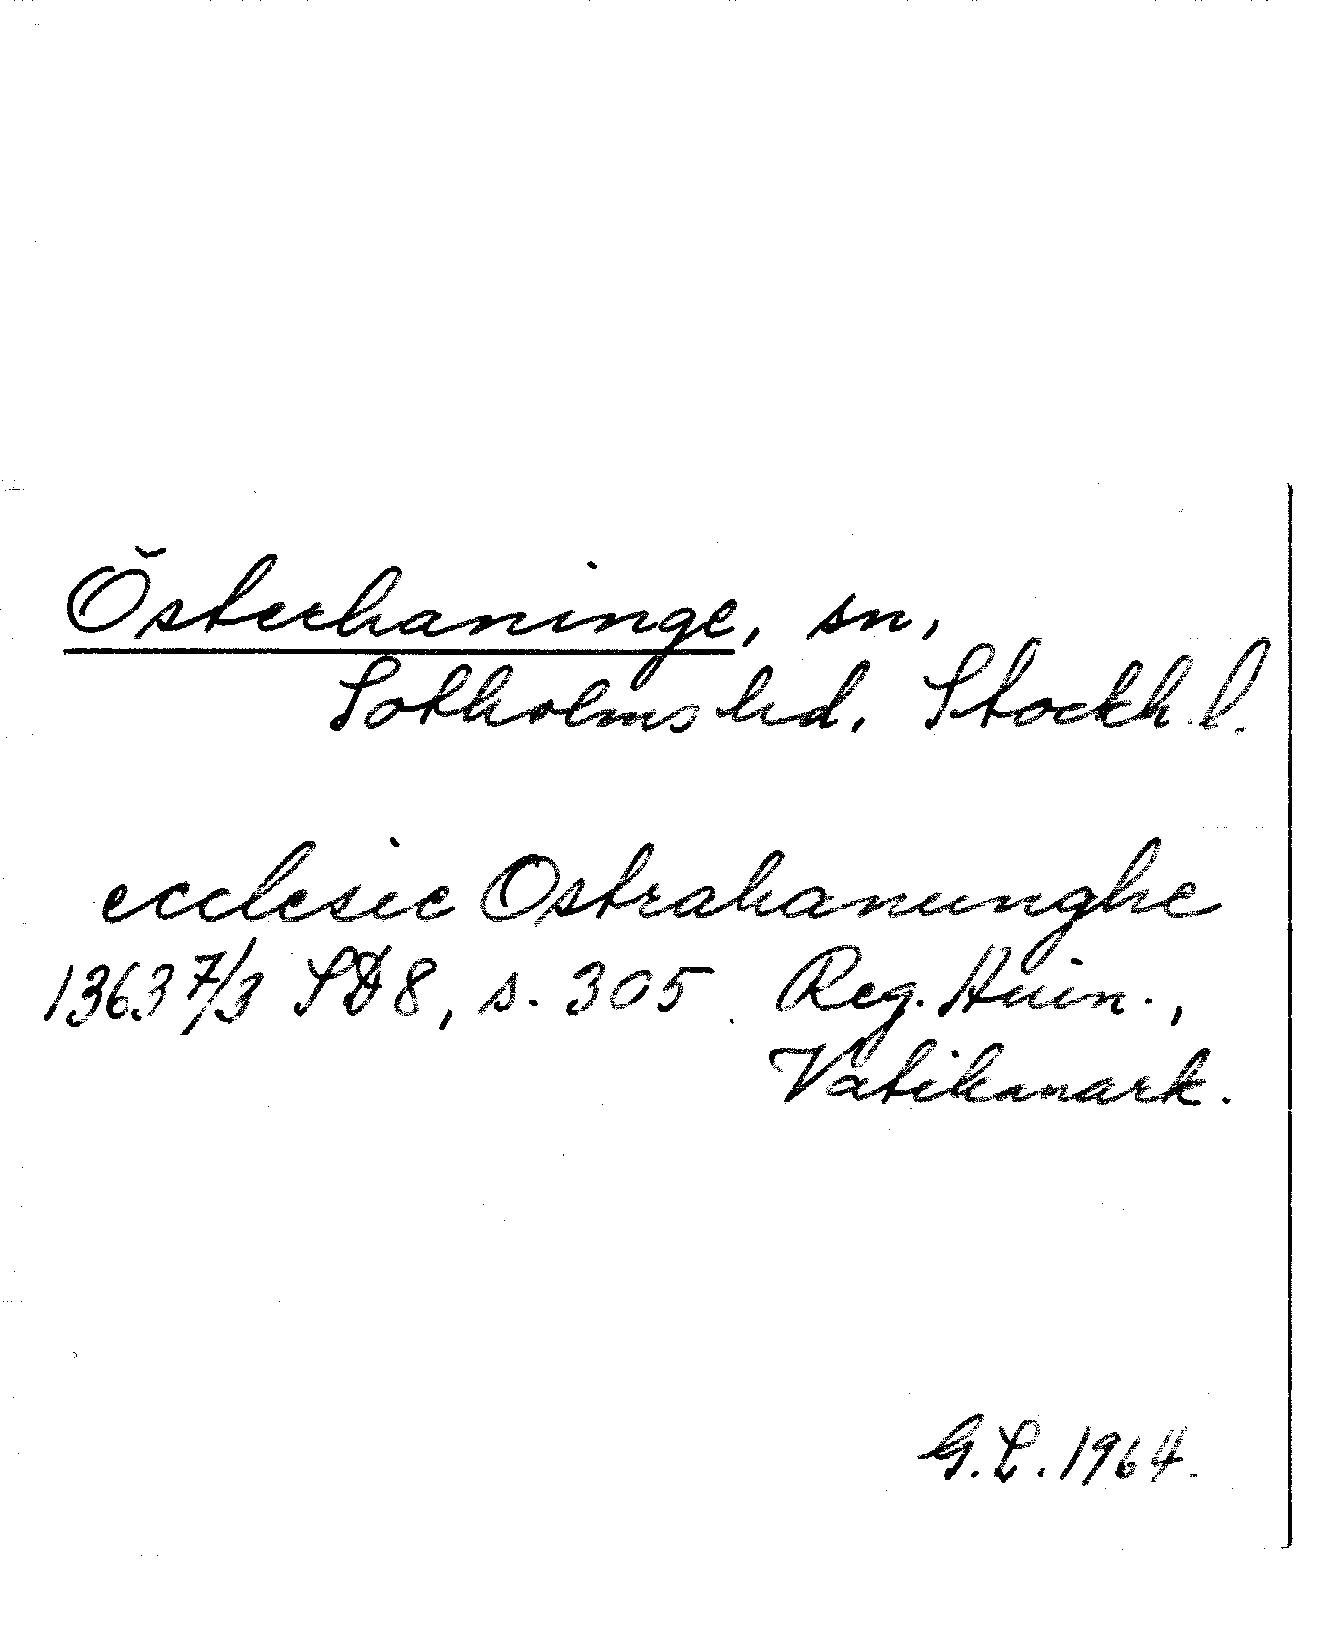 Österhaninge, sn,
Sotholms hd. Stockh. l.
ecclesie Ostrahanunghe
1363 7/3 SD 8, s. 305 Reg. Avin.,
Vatikanark.
G.L. 1964.